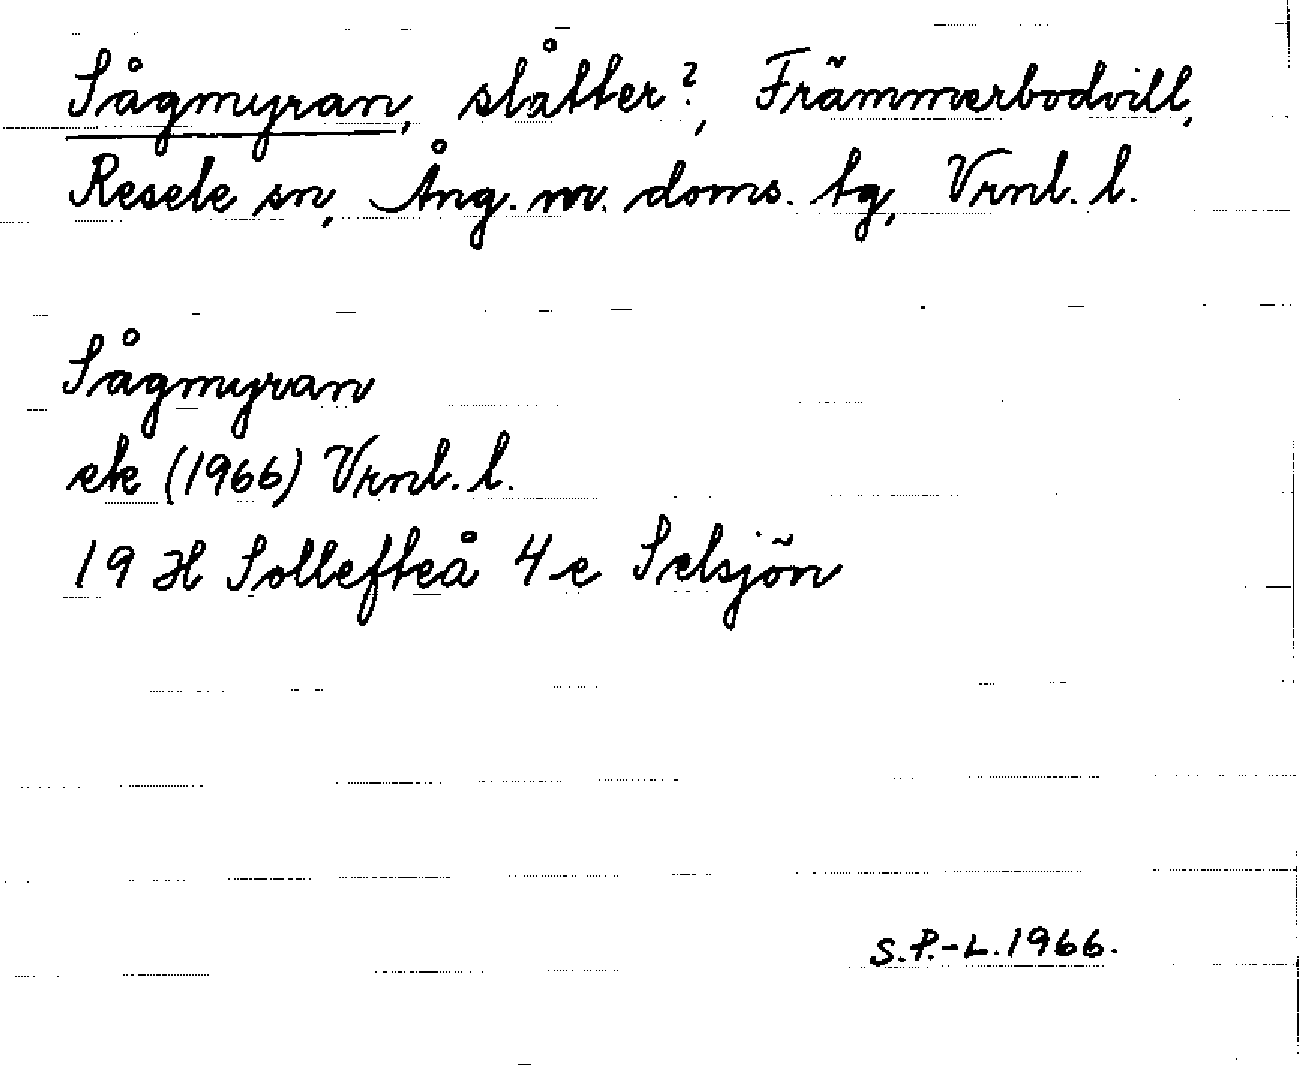 Sågmyran, slåtter?, Främmerbodvill,
Resele sn, Ång. m. doms. tg, Vrnl. l.
Sågmyran
ek (1966) Vrnl. l.
19 H Sollefteå 4 e Selsjön
S.P.-L. 1966.